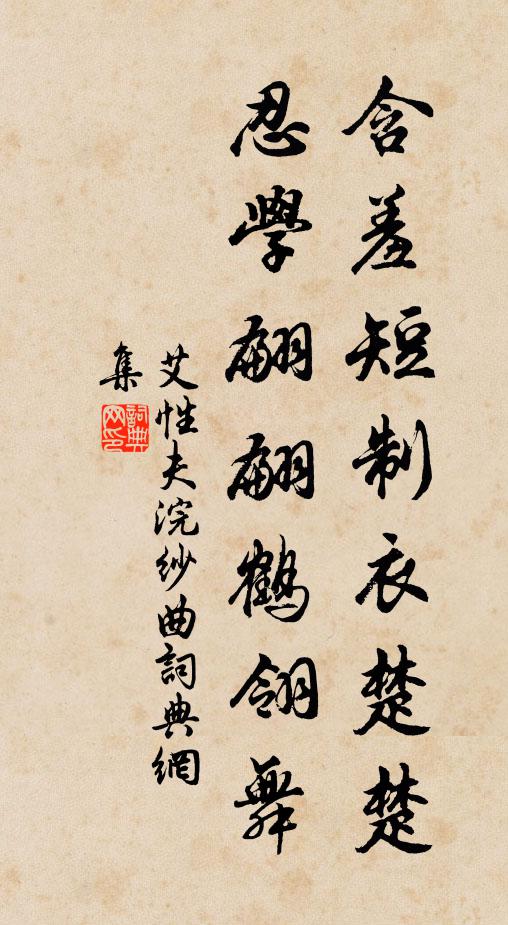 含羞短制衣楚楚
忍學翩翩鶴翎舞
艾性夫浣紗曲詞典網
集
詞典
网印